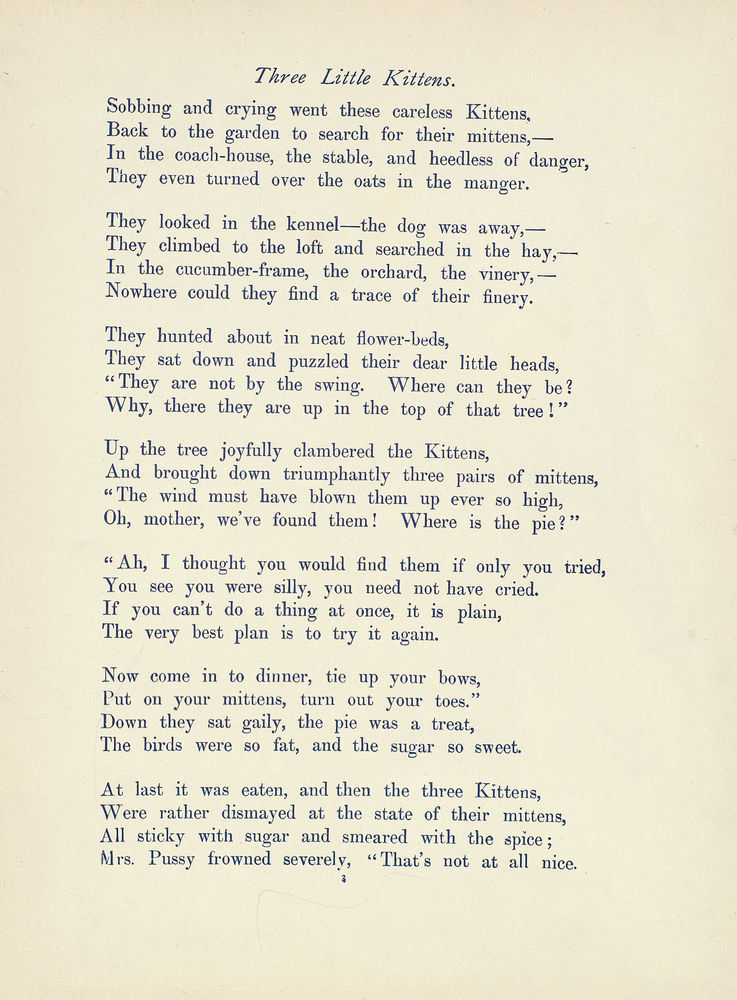 Three Little Kittens.
Sobbing and crying went these careless Kittens,
Back to the garden to search for their mittens,—
In the coach-house, the stable, and heedless of danger,
They even turned over the oats in the manger.
They looked in the kennel—the dog was away,—
They climbed to the loft and searched in the hay,—
In the cucumber-frame, the orchard, the vinery,—
Nowhere could they find a trace of their finery.
They hunted about in neat flower-beds,
They sat down and puzzled their dear little heads,
“They are not by the swing. Where can they be?
Why, there they are up in the top of that tree!”
Up the tree joyfully clambered the Kittens,
And brought down triumphantly three pairs of mittens,
“The wind must have blown them up ever so high,
Oh, mother, we’ve found them! Where is the pie?”
“Ah, I thought you would find them if only you tried,
You see you were silly, you need not have cried.
If you can’t do a thing at once, it is plain,
The very best plan is to try it again.
Now come in to dinner, tie up your bows,
Put on your mittens, turn out your toes.”
Down they sat gaily, the pie was a treat,
The birds were so fat, and the sugar so sweet.
At last it was eaten, and then the three Kittens,
Were rather dismayed at the state of their mittens,
All sticky with sugar and smeared with the spice;
Mrs. Pussy frowned severely, “That’s not at all nice.
3